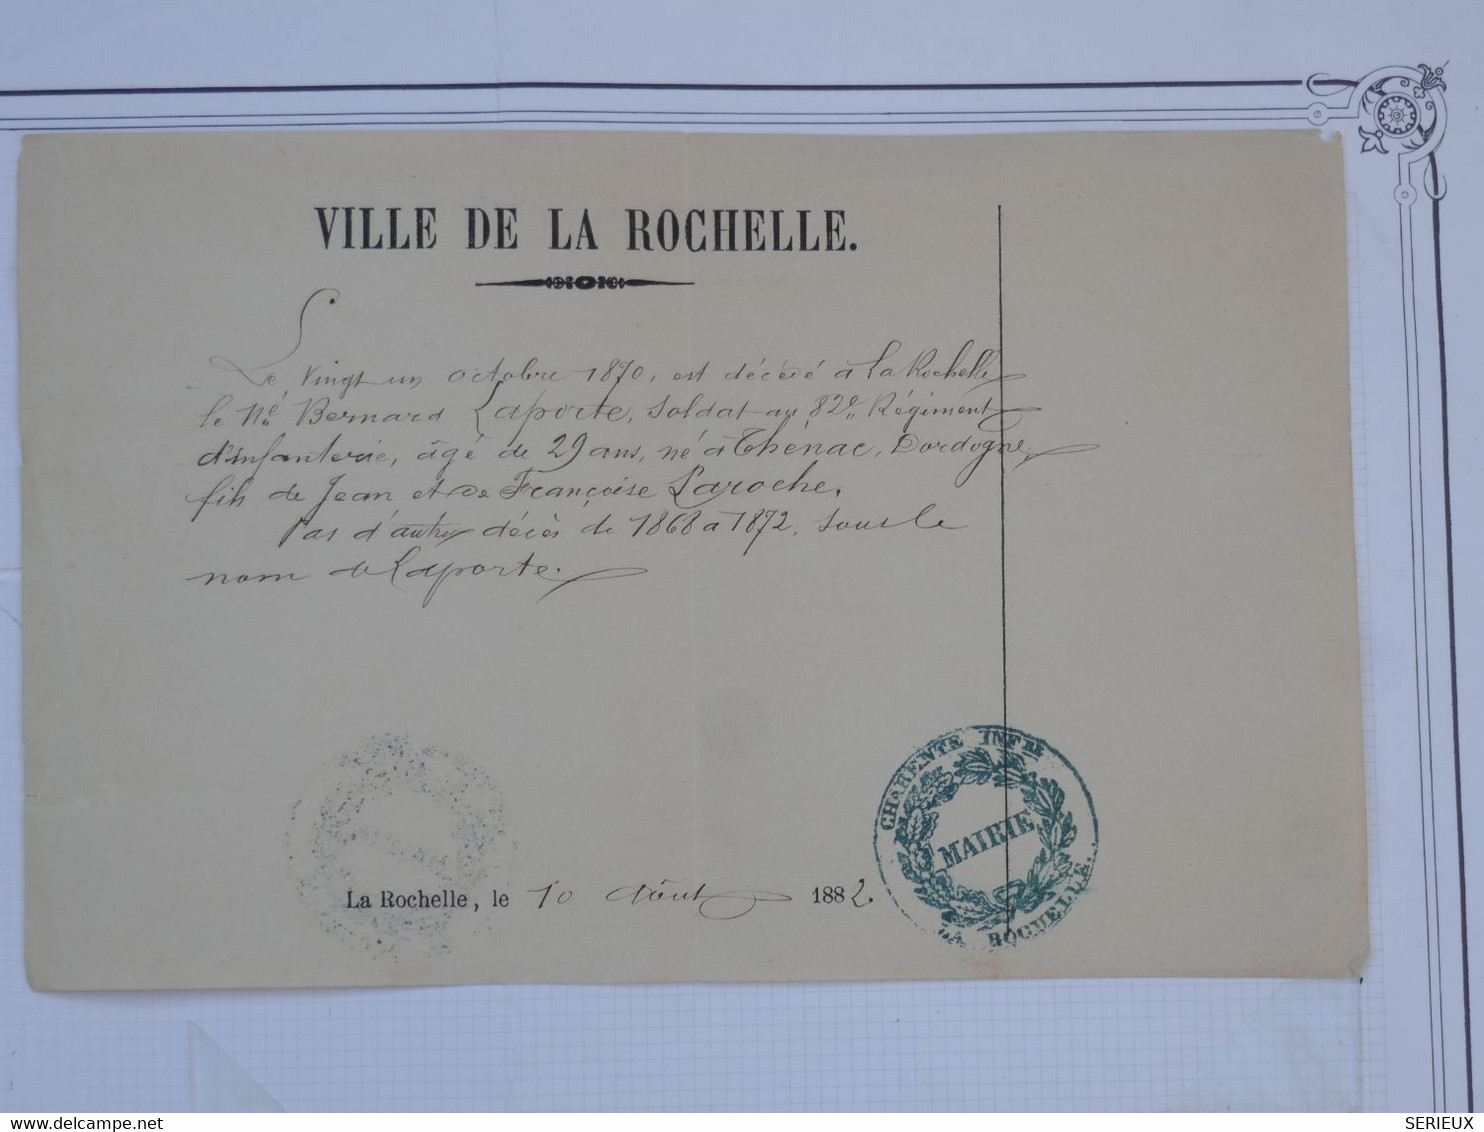 VILLE DE LA ROCHELLE.
Le vingt un octobre 1870, est décédé à La Rochelle
le Né Bernard Laporte, soldat au 82e Régiment
d'infanterie, âgé de 29 ans, né à Thénac, Dordogne,
fils de Jean et de Françoise Laroche.
Pas d'autres décès de 1868 à 1872, sous le
nom de Laporte.
CHARENTE INFRE
MAIRIE
LA ROCHELLE.
La Rochelle, le 10 Août 1882
SERIEUX